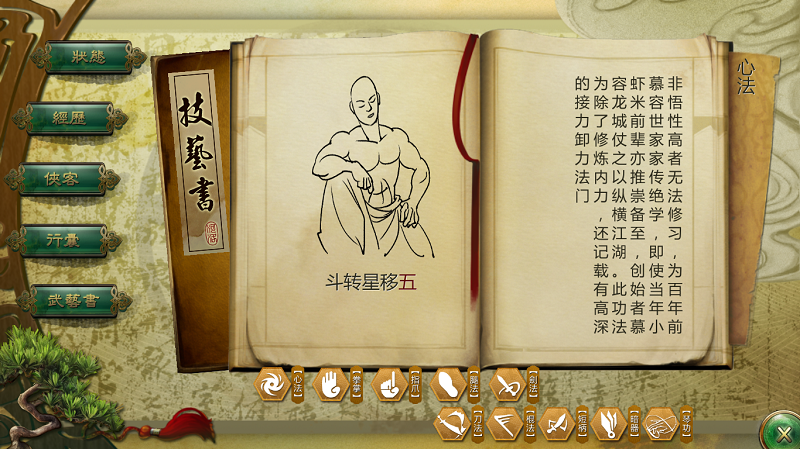 狀態
經歷
俠客
行囊
武藝書
技藝書
斗转星移五
心法
非悟性高者无法修习，为百年前
慕容世家家传绝学，即使当年小
虾米前辈亦推崇备至。创始者慕
容龙城仗之以纵横江湖。此功法
为除了修炼内力，还记载有高深
的接力卸力法门
【心法】
【拳掌】
【指爪】
【腿法】
【剑法】
【刀法】
【棍法】
【短柄】
【暗器】
【琴功】